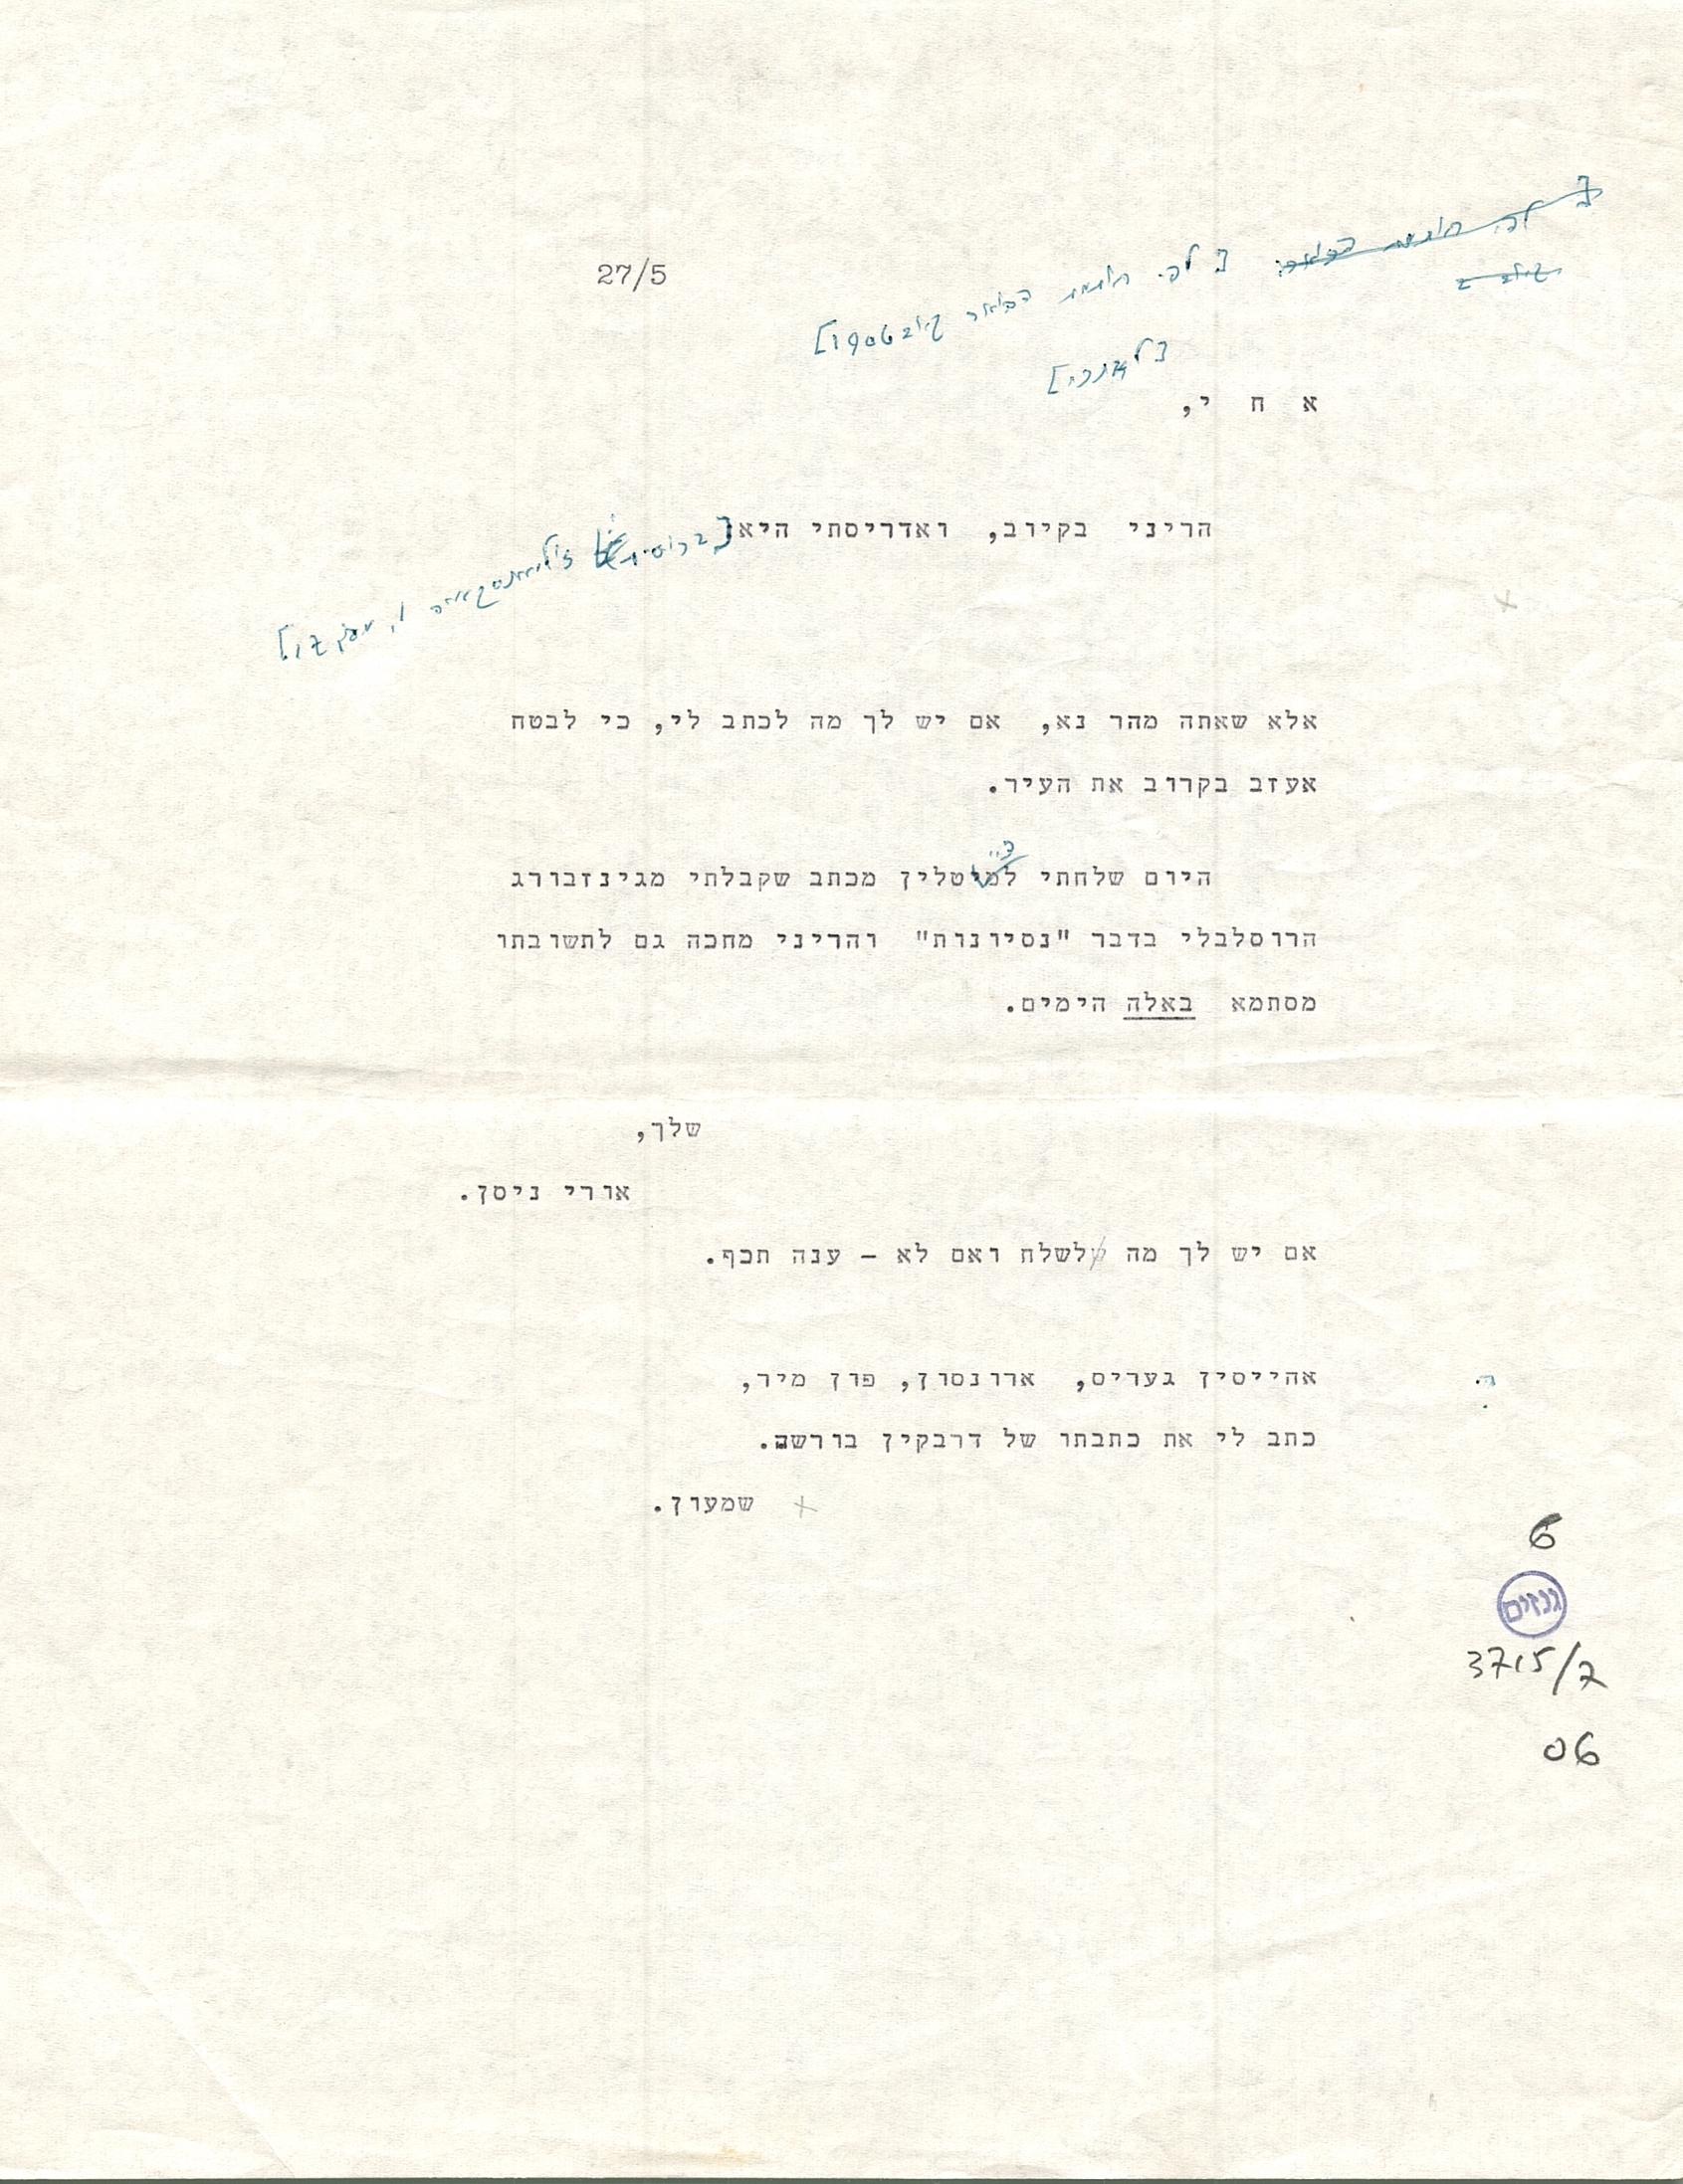 27/5
[לפי חותמת הדואר קיוב 1909]
א ח י,
הריני בקיוב, ואדריסתי היא
אלא שאתה מהר נא, אם יש לך מה לכתב לי, כי לבטח
אעזב בקרוב את העיר.
היום שלחתי למיטלין מכתב שקבלתי מגינזבורג
הרוסלבלי בדבר "נסיונות" והריני מחכה גם לתשובתו
מסתמא באלה הימים.
שלך,
אורי ניסן.
אם יש לך מה לשלח ואם לא – ענה תכף.
אהייסין געריס, ארונסון, פון מיר,
כתב לי את כתבתו של דרבקין בורשה.
שמעון.
6
גנזים
3715/7
06